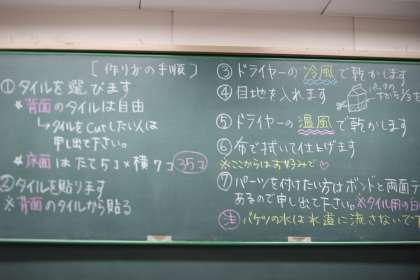 [作り方の手順]
①タイルを選びます
★背面のタイルは自由
↳タイルをcutしたい人は
申し出て下さい。
★床面はたて5コ×横7コ 35コ
②タイルを貼ります
※背面のタイルから貼る
③ドライヤーの冷風で乾かします
④目地を入れます
⑤ドライヤーの温風で乾かします
⑥布で拭いて仕上げます
※ここからはお好みで♡
⑦パーツを付けたい方はボンドと両面テ
あるので申し出て下さい。※タイル用の白
注 バケツの水は水道に流さないで